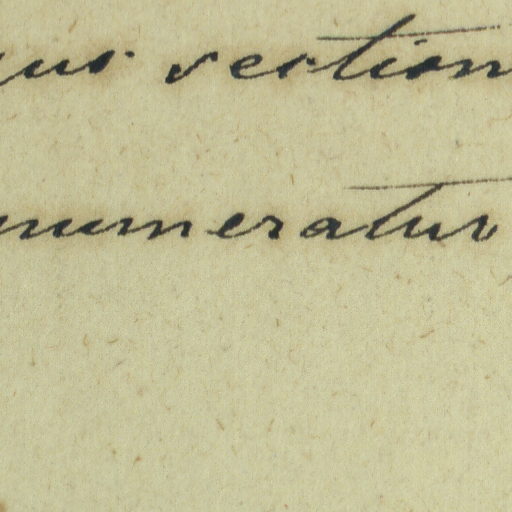 ius section
numeratur